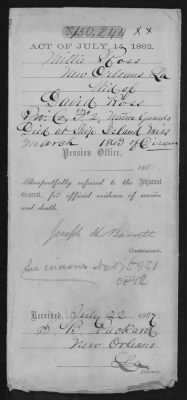 No 150,244 XX
ACT OF JULY 14, 1862.
Ross
New Orleans La
Wid of
David Ross
Pvt. Co. 2, Native Guards
Died at Ship Island Miss
March 1863 of Disease
Pension Office,
186
Respectfully referred to the Adjutant
General, for official evidence of service
and death.
Joseph H Barrett
Commissioner.
Received, July 22 1867
S. B. Packard
New Orleans
La
Attorney.